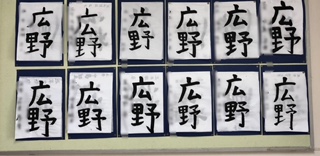 広野
広野
広野
広野
広野
広野
広野
広野
広野
広野
広野
広野